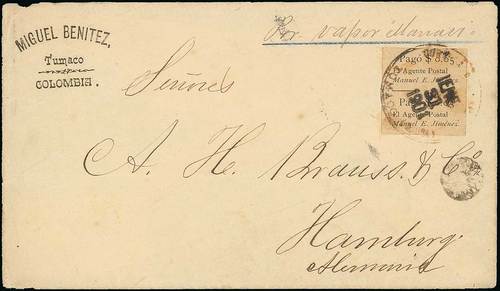 MIGUEL BENITEZ,
Tumaco
COLOMBIA.
Por vapor Manavi
Pago $ 8.65
El Agente Postal
Manuel E. Jiménez
El Agente Postal
Manuel E. Jiménez
ENE
1901
Señores
A. H. Brauss & Co
Hamburg
Alemania